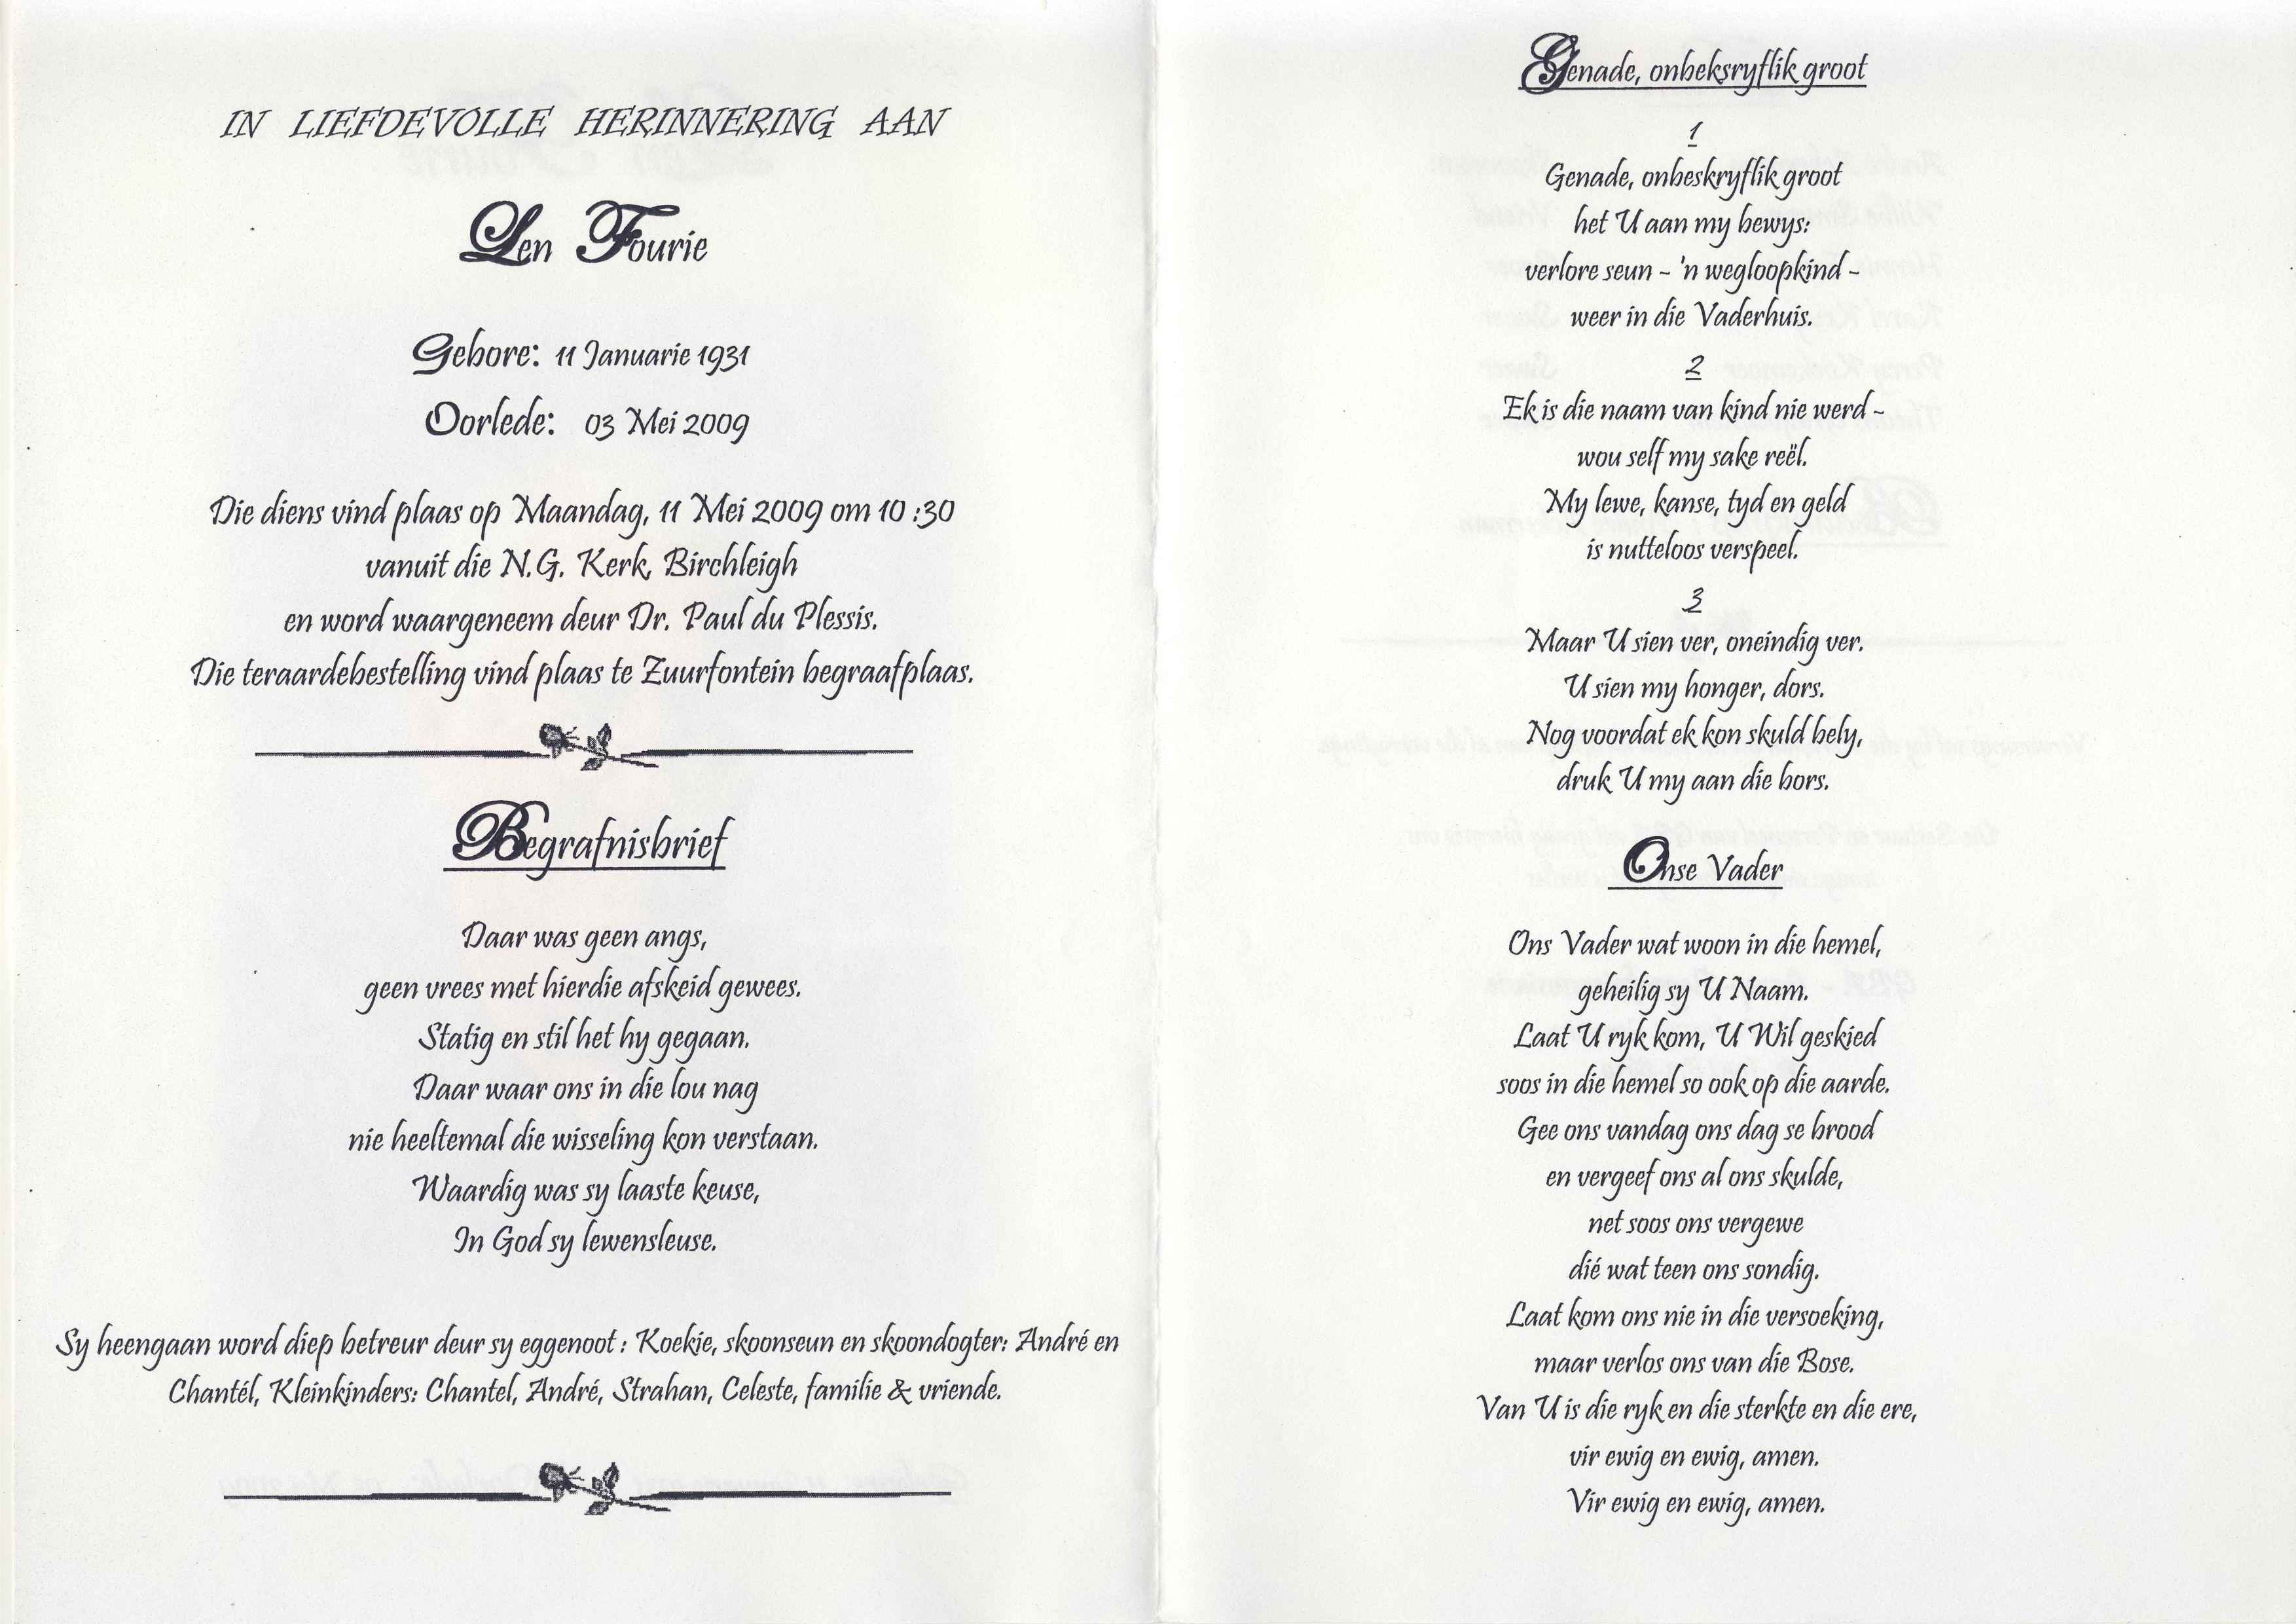 IN LIEFDEVOLLE HERINNERING AAN
Len Fourie
Gebore: 11 Januarie 1931
Oorlede: 03 Mei 2009
Die diens vind plaas op Maandag, 11 Mei 2009 om 10 :30
vanuit die N.G. Kerk, Birchleigh
en word waargeneem deur Dr. Paul du Plessis.
Die teraardebestelling vind plaas te Zuurfontein begraafplaas.
Begrafnisbrief
Daar was geen angs,
geen vrees met hierdie afskeid gewees.
Statig en stil het hy gegaan.
Daar waar ons in die lou nag
nie heeltemal die wisseling kon verstaan.
Waardig was sy laaste keuse,
In God sy lewensleuse.
Sy heengaan word diep betreur deur sy eggenoot : Koekie, skoonseun en skoondogter: André en
Chantél, Kleinkinders: Chantel, André, Strahan, Celeste, familie & vriende.
Genade, onbeksryflik groot
1
Genade, onbeskryflik groot
het U aan my bewys:
verlore seun ~ 'n wegloopkind ~
weer in die Vaderhuis.
2
Ek is die naam van kind nie werd ~
wou self my sake reël.
My lewe, kanse, tyd en geld
is nutteloos verspeel.
3
Maar U sien ver, oneindig ver.
U sien my honger, dors.
Nog voordat ek kon skuld bely,
druk U my aan die bors.
Onse Vader
Ons Vader wat woon in die hemel,
geheilig sy U Naam.
Laat U ryk kom, U Wil geskied
soos in die hemel so ook op die aarde.
Gee ons vandag ons dag se brood
en vergeef ons al ons skulde,
net soos ons vergewe
dié wat teen ons sondig.
Laat kom ons nie in die versoeking,
maar verlos ons van die Bose.
Van U is die ryk en die sterkte en die ere,
vir ewig en ewig, amen.
Vir ewig en ewig, amen.